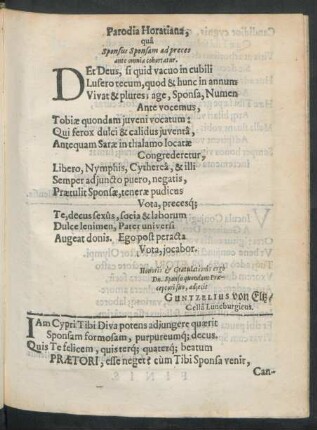 Parodia Horatiana,
quâ
Sponsus Sponsam ad preces
ante omnia cohortatur.
DEt Deus, si quid vacuo in cubili
Lusero tecum, quod & hunc in annum
Vivat & plures: age, Sponsa, Numen
Ante vocemus,
Tobiæ quondam juveni vocatum:
Qui ferox dulci & calidus juventâ,
Antequam Saræ in thalamo locatæ
Congrederetur,
Libero, Nymphis, Cythereæ, & illi
Semper adjuncto puero, negatis,
Prætulit Sponsæ, teneræ pudicus
Vota, precesq;
Te, decus sexûs, socia & laborum
Dulce lenimen, Pater universi
Augeat donis. Ego post peracta
Vota, jocabor.
Honoris & Gratulationis ergò
Dn. Sponso quondam Præ-
ceptori suo, adjecit
GUNTZELIUS von Eltz
Cellâ Luneburgicus.
IAm Cypri Tibi Diva potens adjungere quærit
Sponsam formosam, purpureumq; decus.
Quis Te felicem, quis terq; quaterq; beatum
PRÆTORI, esse neget? cùm Tibi Sponsa venit,
Can-